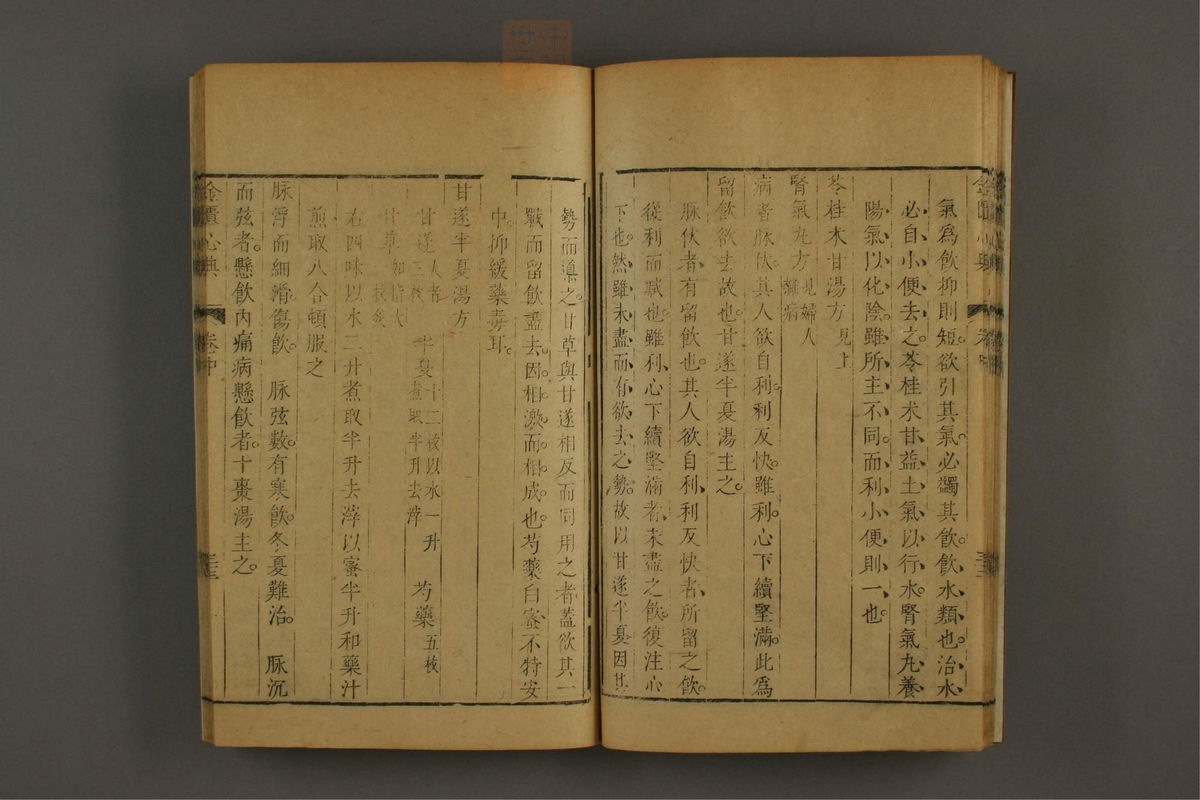 氣爲飲抑則短。欲引其氣。必蠲其飲。飲水類也。治水
必自小便去之。苓桂术甘益土氣以行水。腎氣丸養
陽氣以化陰。雖所主不同。而利小便則一也。
苓桂术甘湯方見上
腎氣丸方見婦人
雜病
病者脉伏。其人欲自利。利反快。雖利。心下續堅滿。此爲
留飲欲去故也。甘遂半夏湯主之。
脉伏者有留飲也。其人欲自利利反快者所留之飲。
從利而減也。雖利心下續堅滿者未盡之飲。復注心
下也。然雖未盡而有欲去之勢。故以甘遂半夏因其
勢而導之。甘草與甘遂相反而同用之者蓋欲其一
戰而留飲盡去。因相激而相成也。芍藥白蜜不特安
中。抑緩藥毒耳。
甘遂半夏湯方
甘遂大者
三枚
半夏十二枚以水一升
煮取半升去滓
芍藥五枚
甘草如指大
一枚炙
右四味以水二升煮取半升去滓以蜜半升和藥汁
煎取八合頓服之
脉浮而細滑。傷飲。 脉弦數。有寒飲。冬夏難治。 脉沉
而弦者。懸飲內痛病懸飲者。十棗湯主之。
金匱心典
卷中